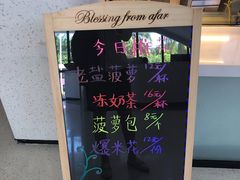 Blessing from afar
今日推
老盐菠萝 /杯
冻奶茶 16元/杯
菠萝包 8元/个
爆米花 12元/份